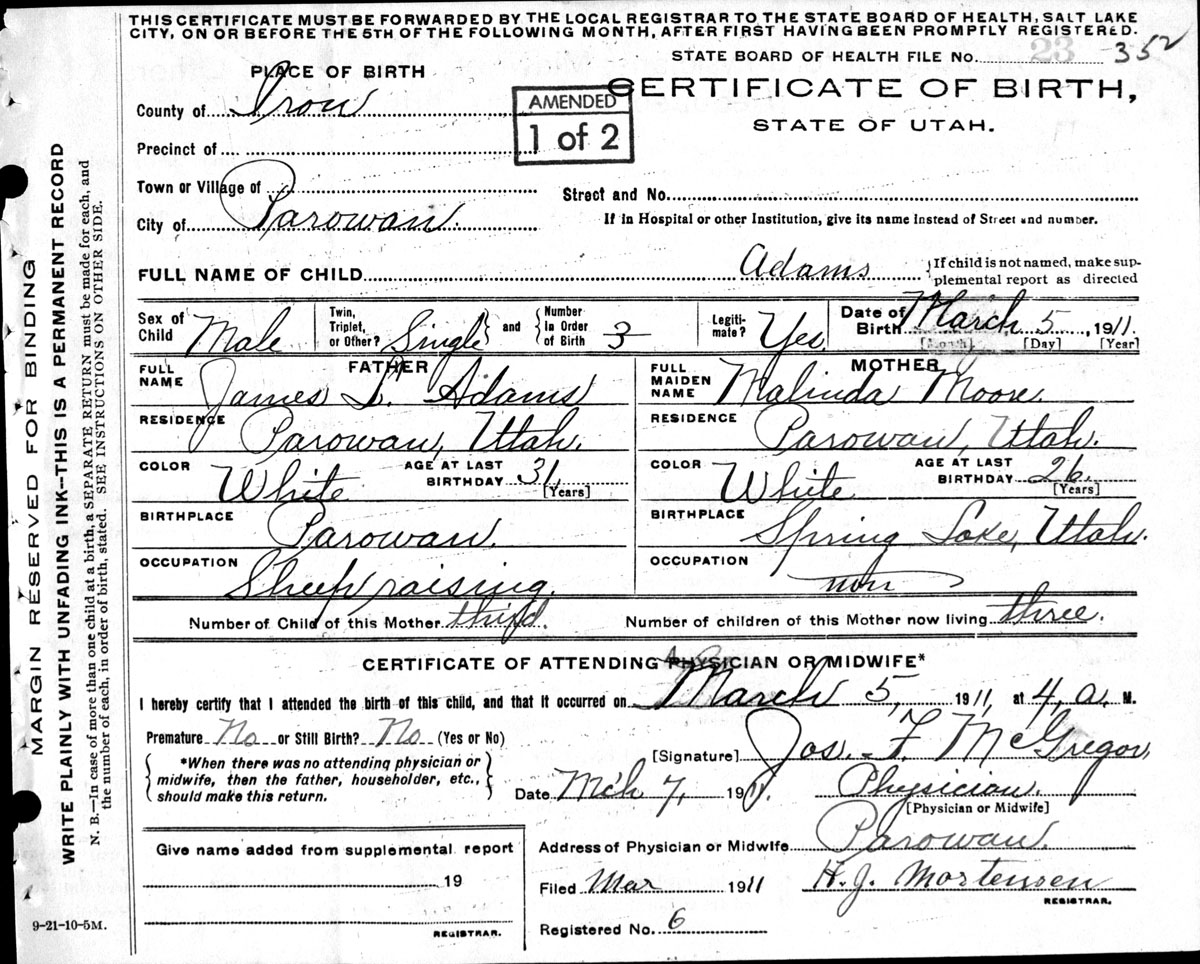 THIS CERTIFICATE MUST BE FORWARDED BY THE LOCAL REGISTRAR TO THE STATE BOARD OF HEALTH, SALT LAKE
CITY, ON OR BEFORE THE 5TH OF THE FOLLOWING MONTH, AFTER FIRST HAVING BEEN PROMPTLY REGISTERED.
STATE BOARD OF HEALTH FILE No. 23 352
PLACE OF BIRTH
CERTIFICATE OF BIRTH,
STATE OF UTAH.
AMENDED
1 of 2
County of Iron
Precinct of
Town or Village of
Street and No.
City of Parowan.
If in Hospital or other Institution, give its name instead of Street and number.
FULL NAME OF CHILD Adams
If child is not named, make sup-
plemental report as directed
Sex of Child Male
Twin, Triplet, or Other? Single and Number in Order of Birth 3
Legiti-mate? Yes
Date of Birth March 5, 1911.
[Month] [Day] [Year]
FATHER
FULL NAME James L. Adams
RESIDENCE Parowan, Utah.
COLOR White
AGE AT LAST BIRTHDAY 31,
[Years]
BIRTHPLACE Parowan.
OCCUPATION Sheep raising.
MOTHER
FULL MAIDEN NAME Malinda Moore.
RESIDENCE Parowan, Utah.
COLOR White
AGE AT LAST BIRTHDAY 26.
[Years]
BIRTHPLACE Spring Lake, Utah.
OCCUPATION
Number of Child of this Mother third.
Number of children of this Mother now living three.
CERTIFICATE OF ATTENDING PHYSICIAN OR MIDWIFE*
I hereby certify that I attended the birth of this child, and that it occurred on March 5, 1911, at 4, a. M.
Premature No or Still Birth? No (Yes or No)
*When there was no attending physician or
midwife, then the father, householder, etc.,
should make this return.
[Signature] Jos. F. McGregor,
Date Mch 7, 1911.
Physician.
[Physician or Midwife]
Give name added from supplemental report
19
REGISTRAR.
Address of Physician or Midwife Parowan.
Filed Mar 1911
H. J. Mortensen
REGISTRAR.
Registered No. 6
9-21-10-5M.
MARGIN RESERVED FOR BINDING
WRITE PLAINLY WITH UNFADING INK--THIS IS A PERMANENT RECORD
N. B.—In case of more than one child at a birth, a SEPARATE RETURN must be made for each, and
the number of each, in order of birth, stated. SEE INSTRUCTIONS ON OTHER SIDE.